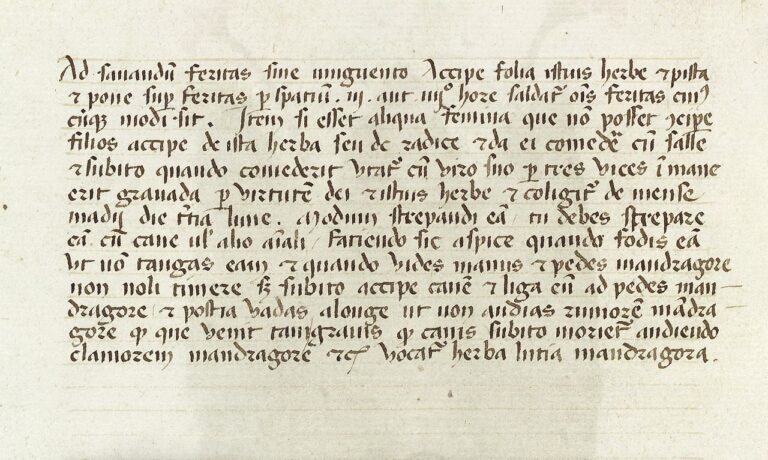 Ad sanandū feritas sine unguento Accipe folia istius herbe ⁊ pista
⁊ pone sup̄ feritas p̄ spatiū .iij. aut iiijᵒʳ hore saldat᷑ oīs feritas cuiꝰ
cūqꝫ modi sit. Item si esset aliqua femina que nō posset ↄcipe
filios accipe de ista herba seu de radice ⁊ da ei comedē cū salse
⁊ subito quando comederit utat᷑ cū viro suo p̄ tres vices ī mane
erit gravada p̄ virtutē dei ⁊ istius herbe ⁊ coligit᷑ de mense
madij die t̄tia lune. Modum strepandi eā. tu debes strepare
eā cū cane ul̓ alio aīali. Faciendo sic aspice quando fodis eā
ut nō tangas eam ⁊ quando vides manus ⁊ pedes mandragore
non noli timere sꝫ subito accipe canē ⁊ liga eū ad pedes man
dragore ⁊ postea vadas alonge ut non audias rumorē mādra
gorē qꝫ que venit tam gravis qꝫ canis subito moriet᷑ audiendo
clamorem mandragorē ⁊c̄ vocat᷑ herba mandragora.